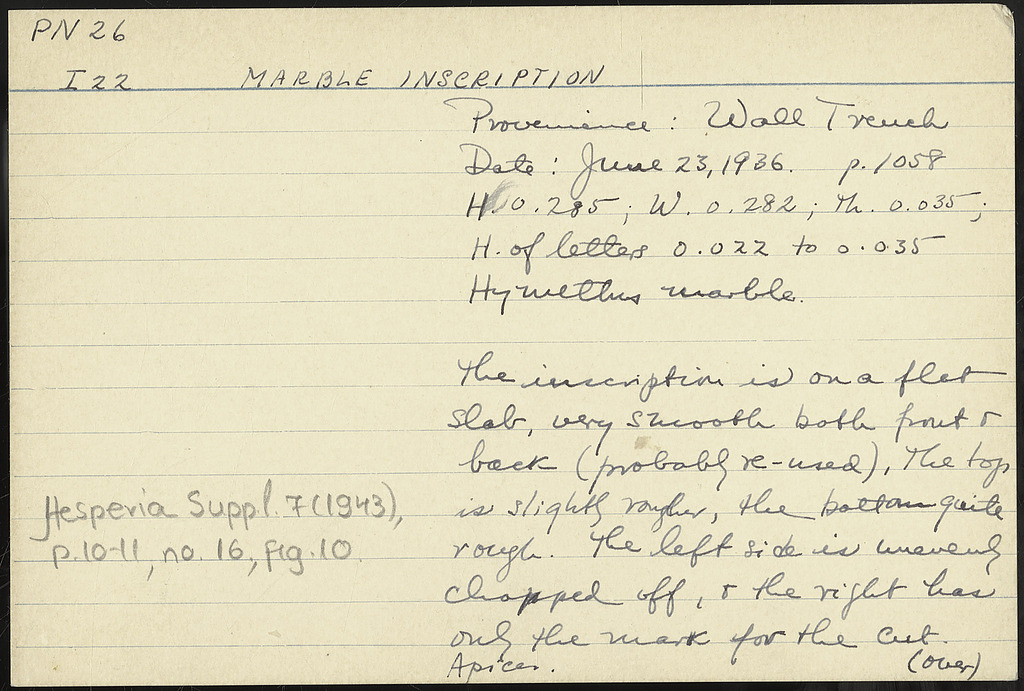 PN 26
I 22 MARBLE INSCRIPTION
Provenience : Wall Trench
Date : June 23, 1936. p. 1058
H. 0.285 ; W. 0.282 ; Th. 0.035 ;
H. of letters 0.022 to 0.035
Hymettus marble.
The inscription is on a flat
slab, very smooth both front &
back (probably re-used), The top
is slightly rougher, the bottom quite
rough. The left side is unevenly
chopped off, & the right has
only the mark for the cut.
Apices. (over)
Hesperia Suppl. 7 (1943),
p. 10-11, no. 16, fig. 10.